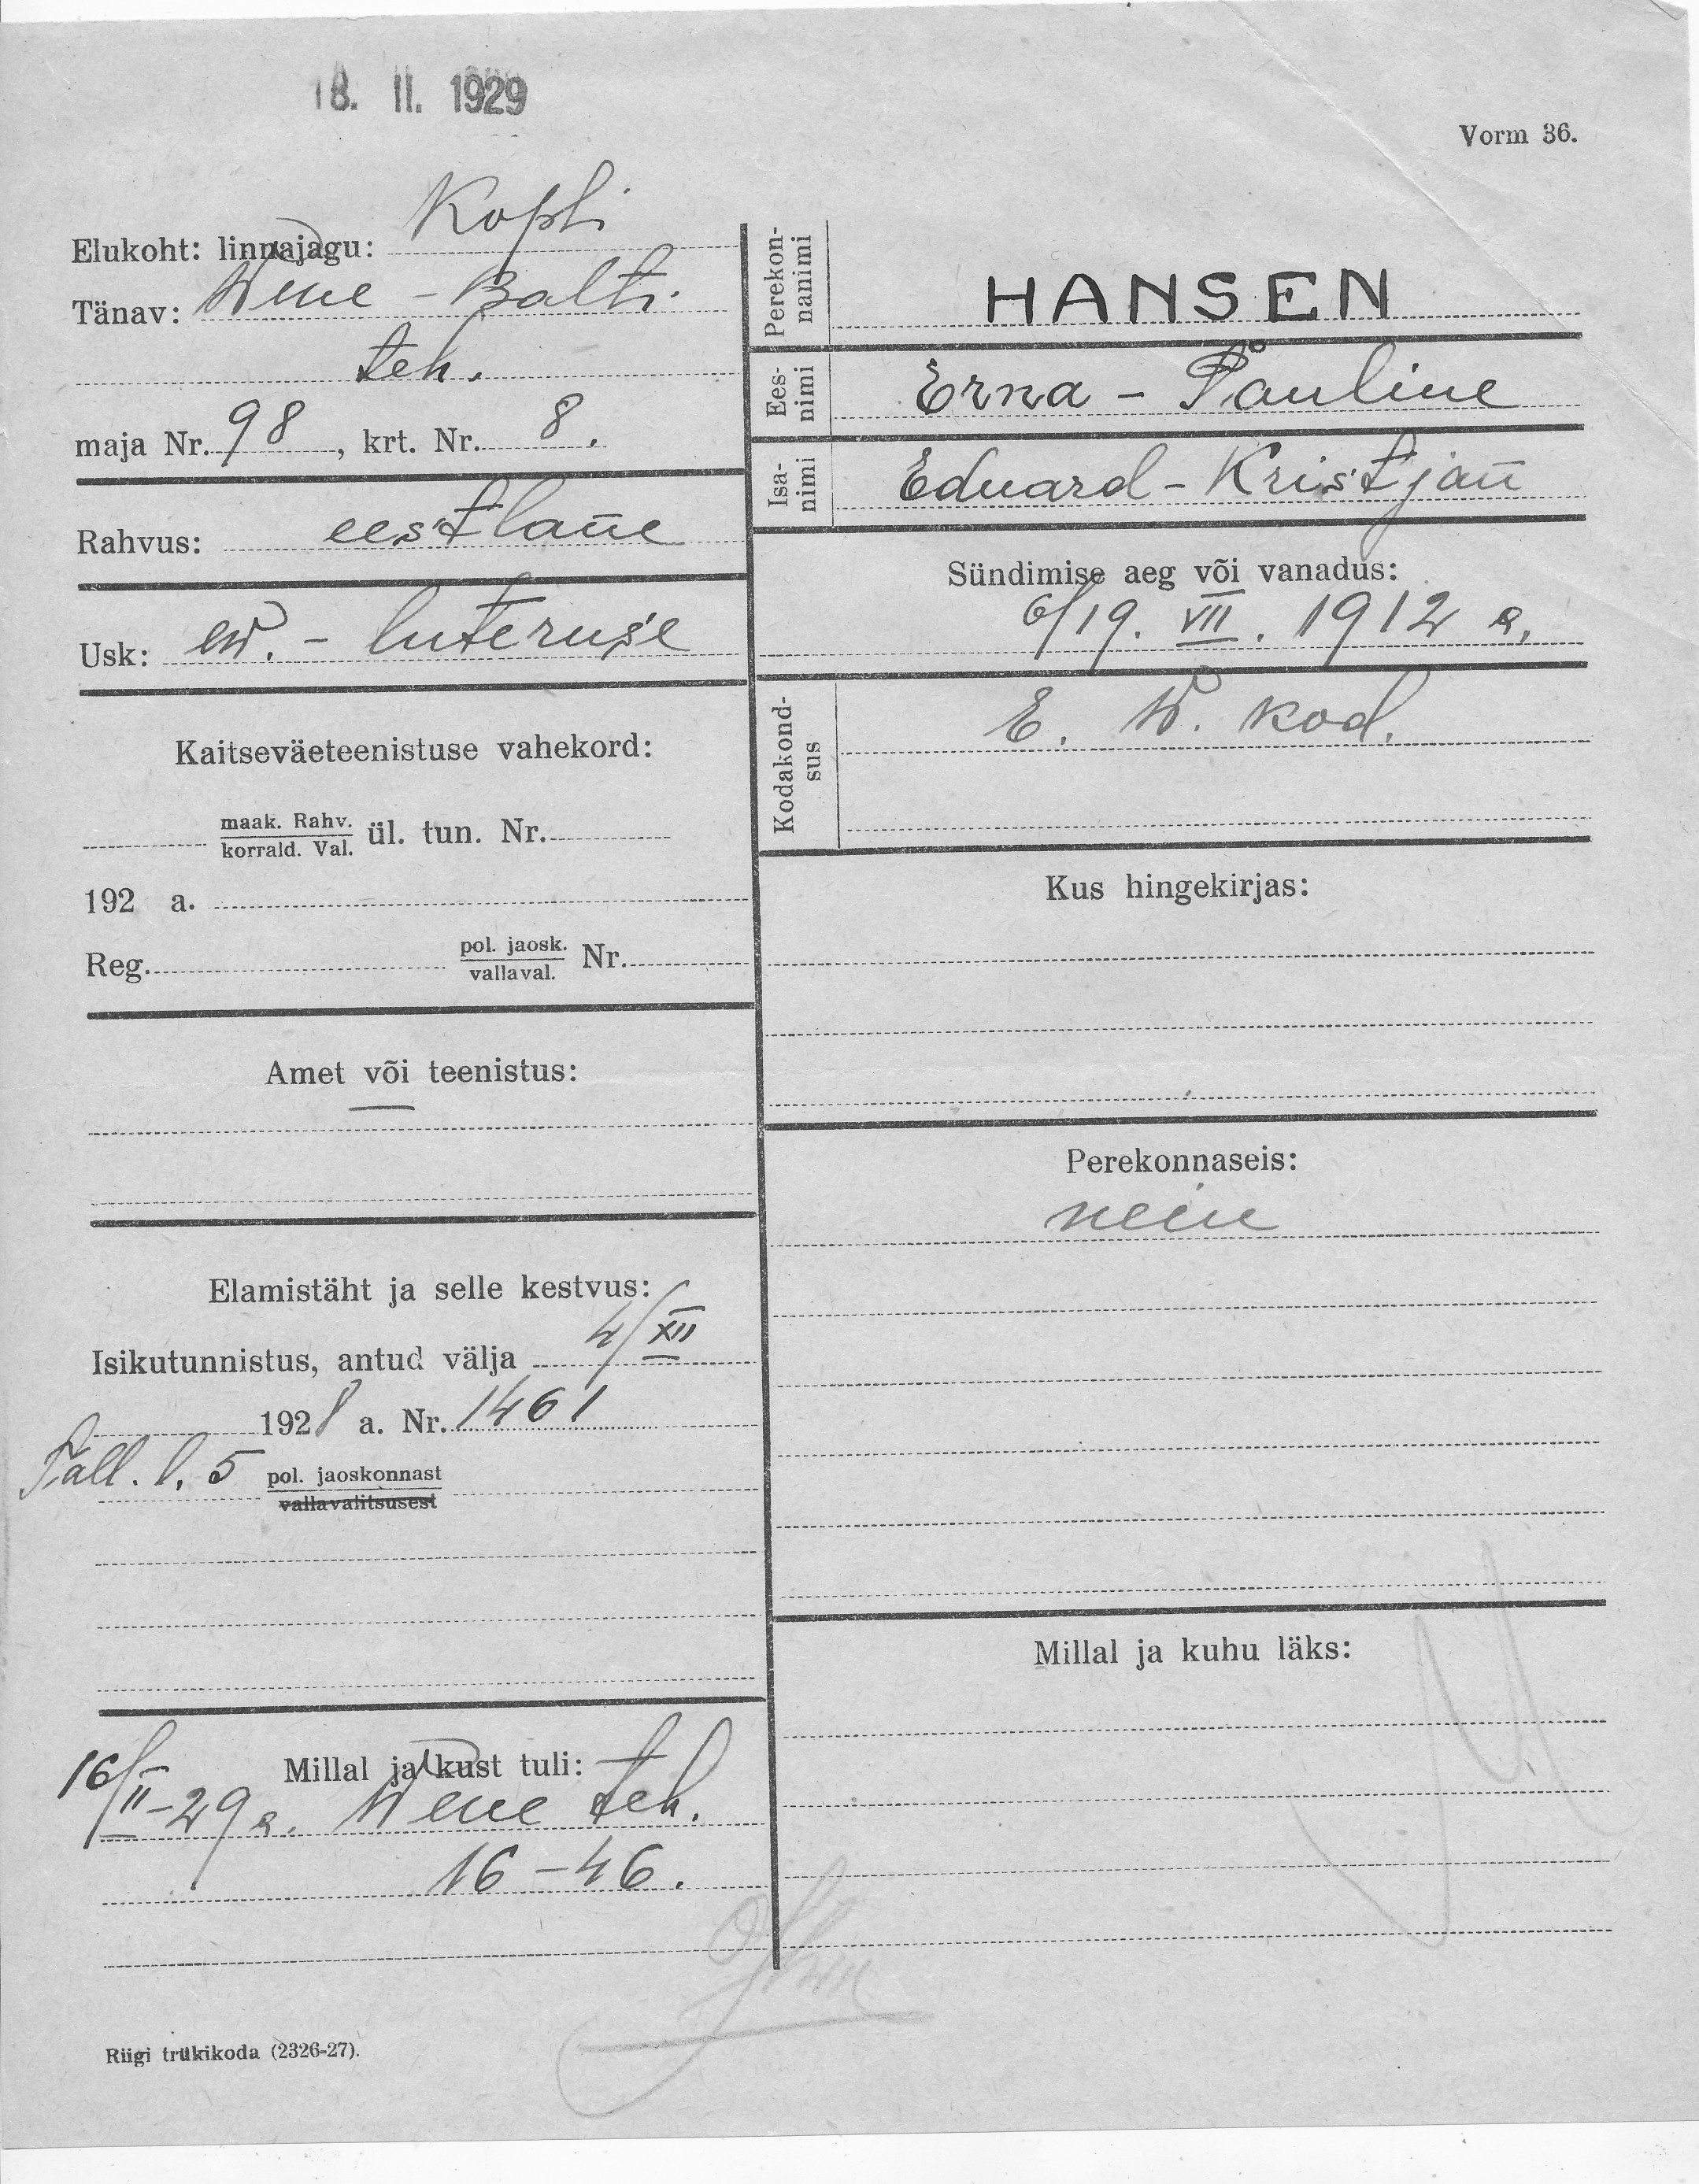 18. II. 1929
Vorm 36.
Elukoht: linnajagu: Kopli
Tänav: Wene - Balti
teh.
maja Nr. 98, krt. Nr. 8.
Rahvus: eestlane
Usk: ew. - luteruse
Kaitseväeteenistuse vahekord:
maak. Rahv.
korrald. Val.
ül. tun. Nr.
192 a.
Reg.
pol. jaosk.
vallaval.
Nr.
Amet või teenistus:
—
Elamistäht ja selle kestvus:
Isikutunnistus, antud välja 4/XII
1928 a. Nr. 1461
Tall. l. 5 pol. jaoskonnast
vallavalitsusest
Millal ja kust tuli:
16/II-29 a. Wene teh.
16-46.
Riigi trükikoda (2326-27).
Perekon-
nanimi
HANSEN
Ees-
nimi
Erna - Pauline
Isa-
nimi
Eduard - Kristjan
Sündimise aeg või vanadus:
6/19. VII. 1912 a.
Kodakond-
sus
E. W. kod.
Kus hingekirjas:
Perekonnaseis:
neiu
Millal ja kuhu läks: